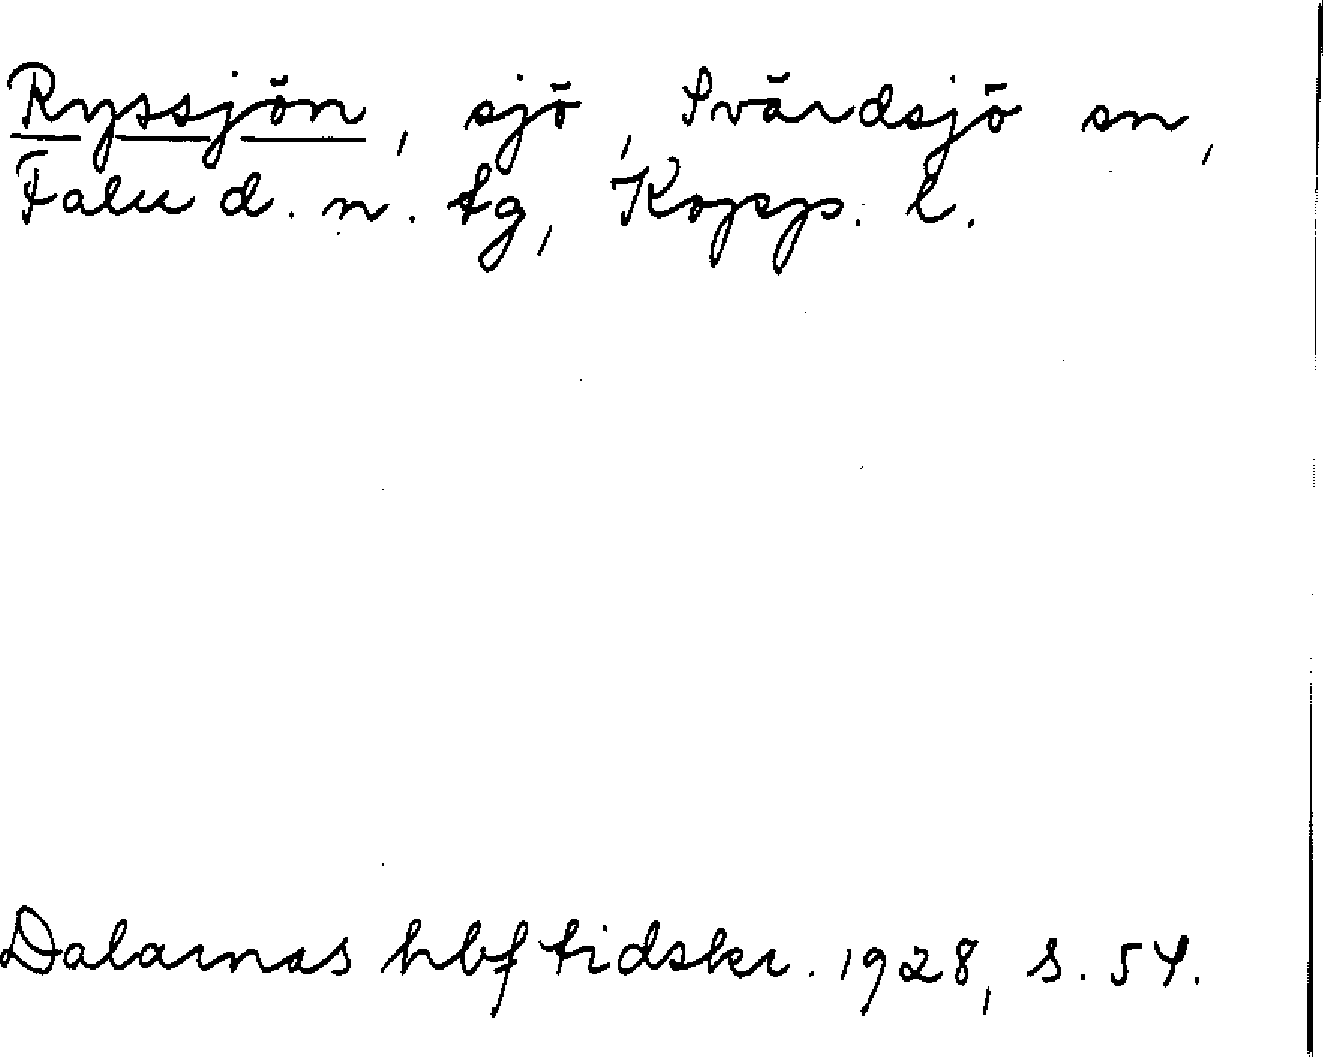 Ryssjön, sjö, Svärdsjö sn,
Falu d. n. tg, Kopp. l.
Dalarnas hbf tidskr. 1928, s. 54.